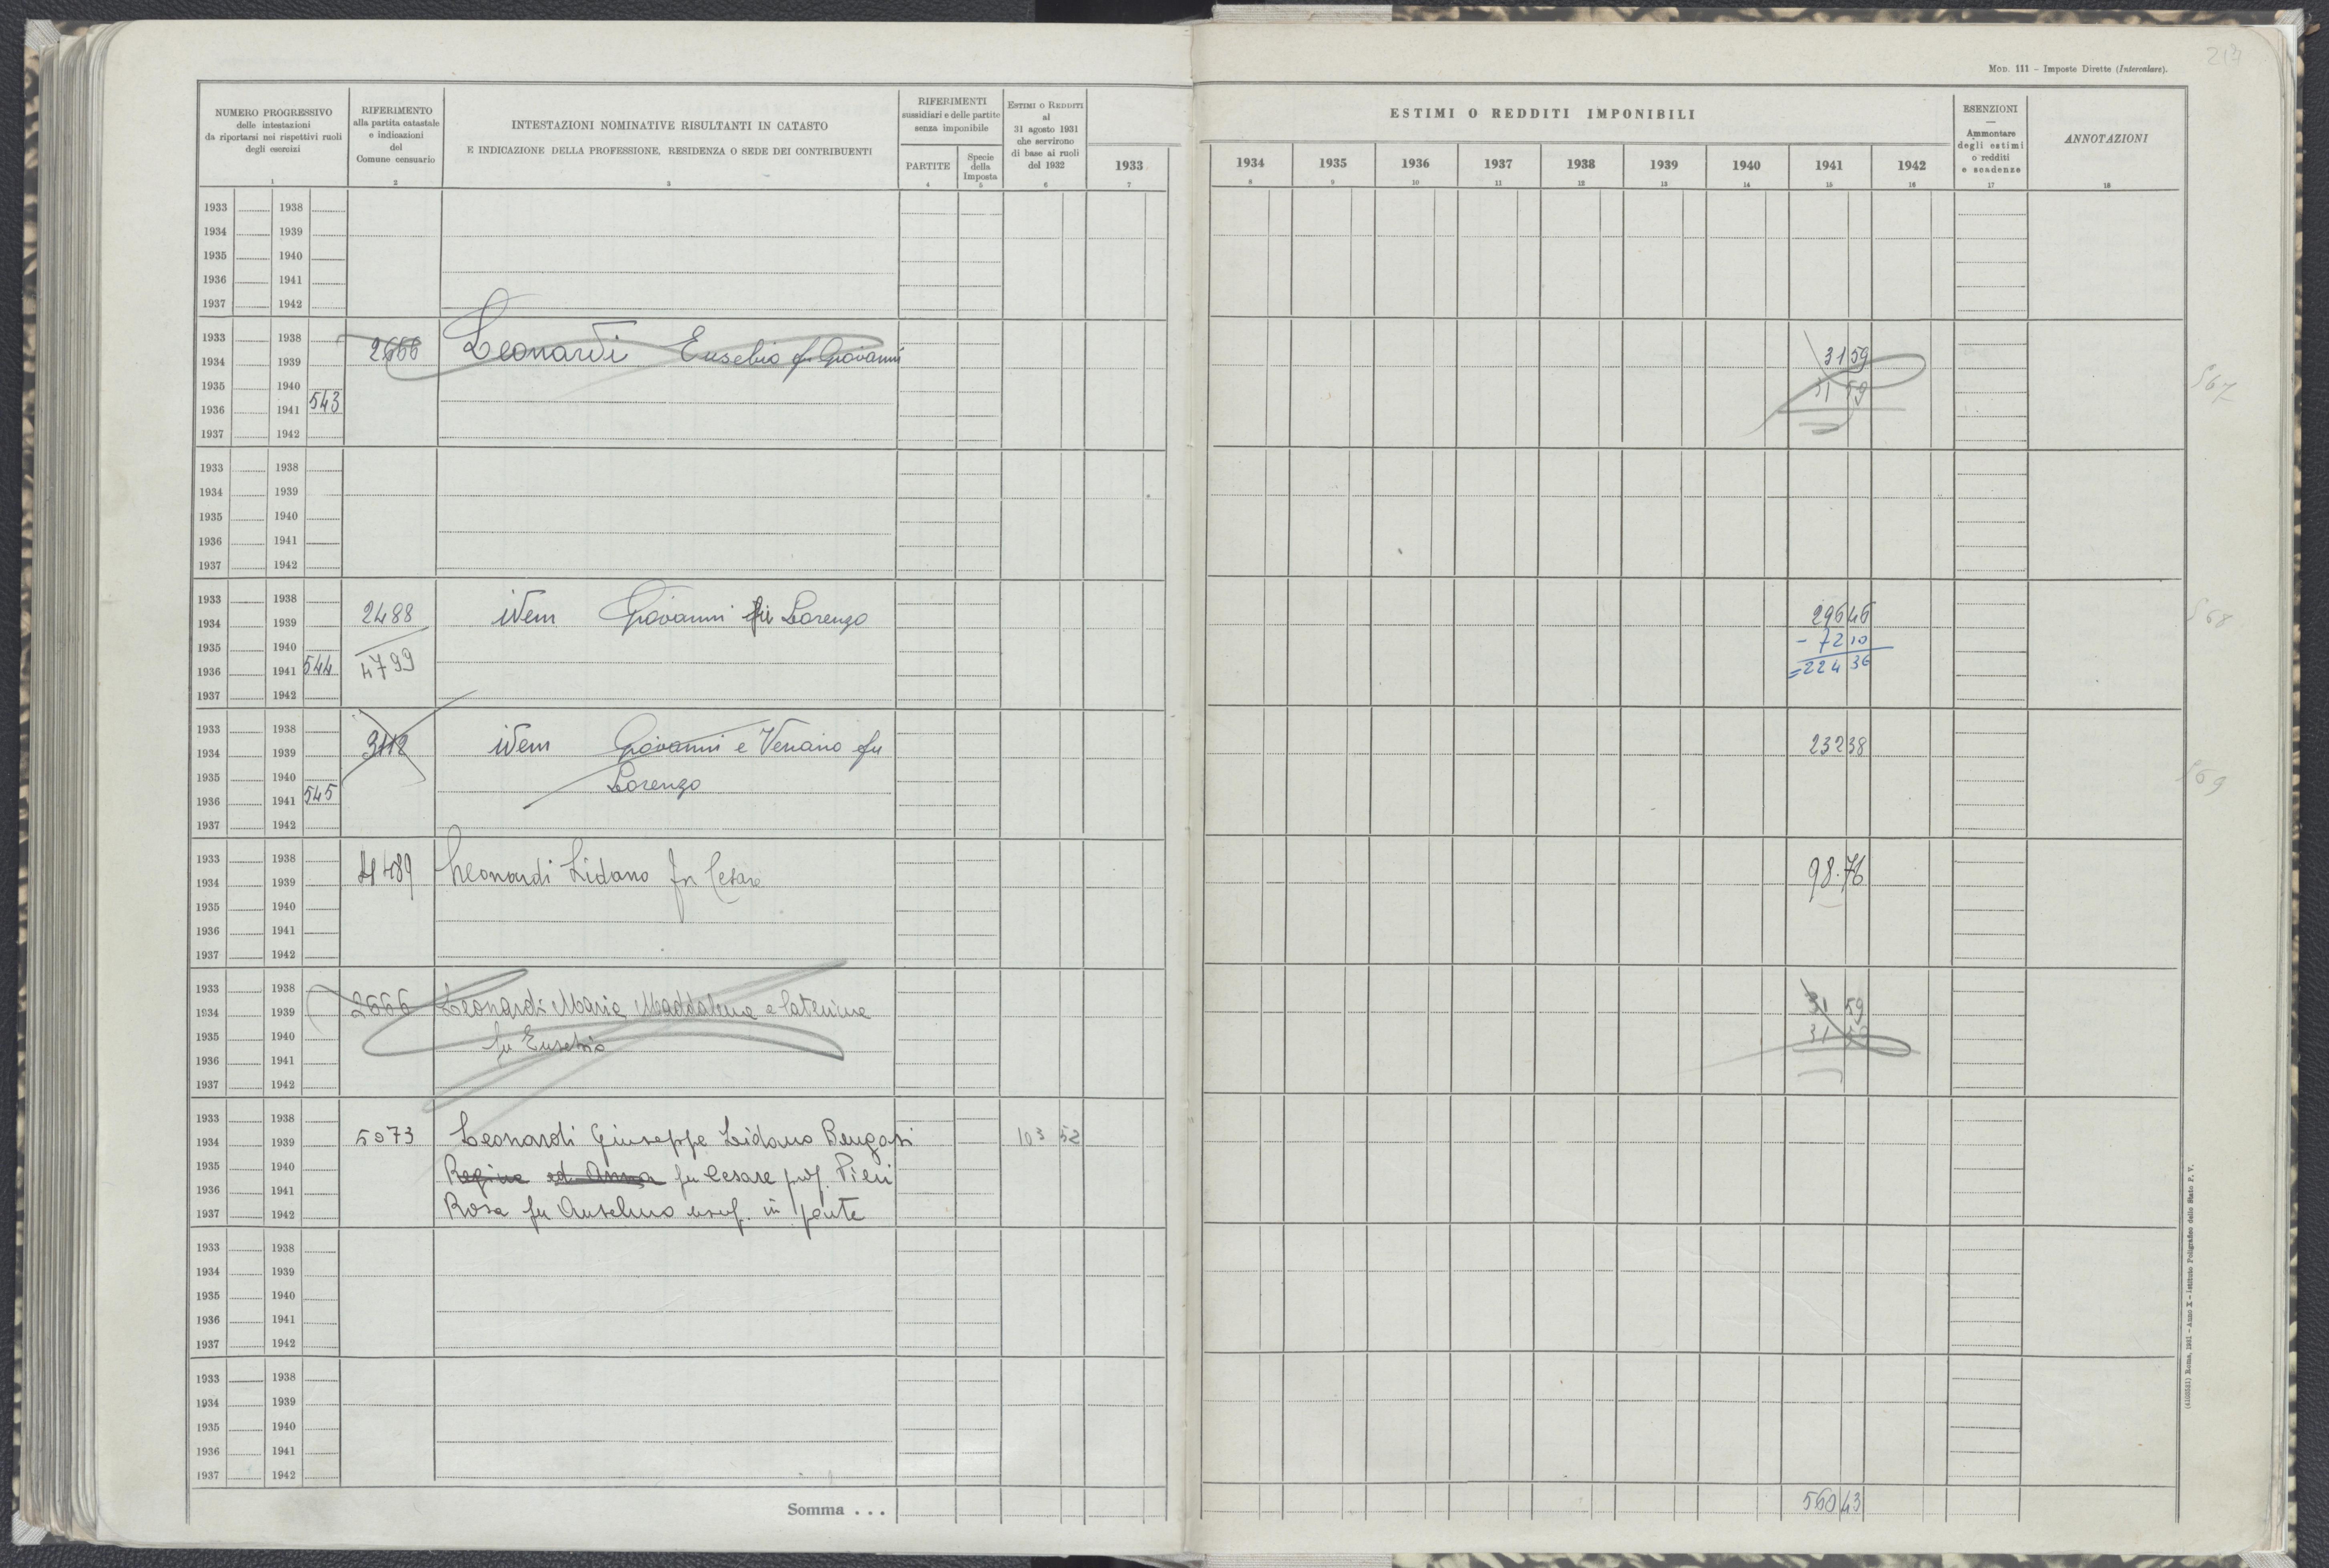 213
MOD. 111 – Imposte Dirette (Intercalare).
NUMERO PROGRESSIVO
delle intestazioni
da riportarsi nei rispettivi ruoli
degli esercizi
RIFERIMENTO
alla partita catastale
e indicazioni
del
Comune censuario
INTESTAZIONI NOMINATIVE RISULTANTI IN CATASTO
E INDICAZIONE DELLA PROFESSIONE, RESIDENZA O SEDE DEI CONTRIBUENTI
RIFERIMENTI
sussidiari e delle partite
senza imponibile
PARTITE
Specie
della
Imposta
ESTIMI O REDDITI
al
31 agosto 1931
che servirono
di base ai ruoli
del 1932
ESTIMI O REDDITI IMPONIBILI
1933 1934 1935 1936 1937 1938 1939 1940 1941 1942
ESENZIONI
—
Ammontare
degli estimi
o redditi
e scadenze
ANNOTAZIONI
1 2 3 4 5 6 7 8 9 10 11 12 13 14 15 16 17 18
1933 1938
1934 1939
1935 1940
1936 1941
1937 1942
1933 1938
1934 1939 2666 Leonardi Eusebio fu Giovanni 31 59
1935 1940 31 59 567
1936 1941 543
1937 1942
1933 1938
1934 1939
1935 1940
1936 1941
1937 1942
1933 1938
1934 1939 2488 idem Giovanni fu Lorenzo 296 46 568
1935 1940 - 72 10
1936 1941 544 4799 =224 36
1937 1942
1933 1938
1934 1939 3112 idem Giovanni e Venanio fu 232 38
1935 1940 Lorenzo 569
1936 1941 545
1937 1942
1933 1938
1934 1939 4489 Leonardi Lidano fu Cesare 98.76
1935 1940
1936 1941
1937 1942
1933 1938
1934 1939 2666 Leonardi Maria Maddalena e Caterina 31 59
1935 1940 fu Eusebio 31 59
1936 1941
1937 1942
1933 1938
1934 1939 5073 Leonardi Giuseppe Lidano Bengasi 103 52
1935 1940 Regina ed Anna fu Cesare prof. Pieri
1936 1941
1937 1942 Rosa fu Anselmo usuf. in parte
1933 1938
1934 1939
1935 1940
1936 1941
1937 1942
1933 1938
1934 1939
1935 1940
1936 1941
1937 1942
Somma . . . 560 43
(4100581) Roma, 1931 – Anno X – Istituto Poligrafico dello Stato P. V.